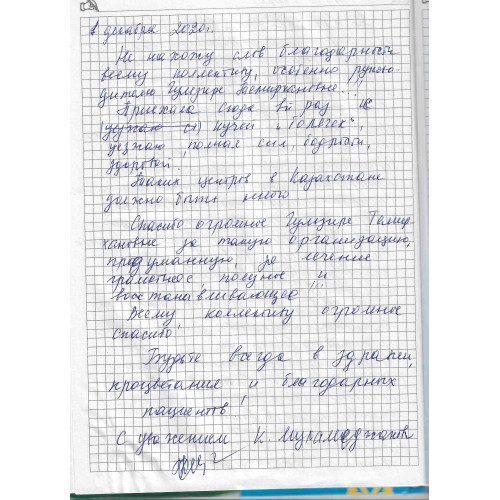 1 декабря 2020г.
Не нахожу слов благодарности
всему коллективу, особенно руково-
дителю Гулзире Темирхановне!!
Приехала сюда
кучей "болячек",
уезжаю полная сил, бодрости,
здоровой.
Таких центров в Казахстане
должно быть много
Спасибо огромное Гулзире Темир-
хановне за такую организацию,
продуманную, за лечение
грамотное полезное и
восстанавливающее!!!
Всему коллективу огромное
спасибо!
Будьте всегда в здравии,
процветания и благодарных
пациентов!
С уважением К.